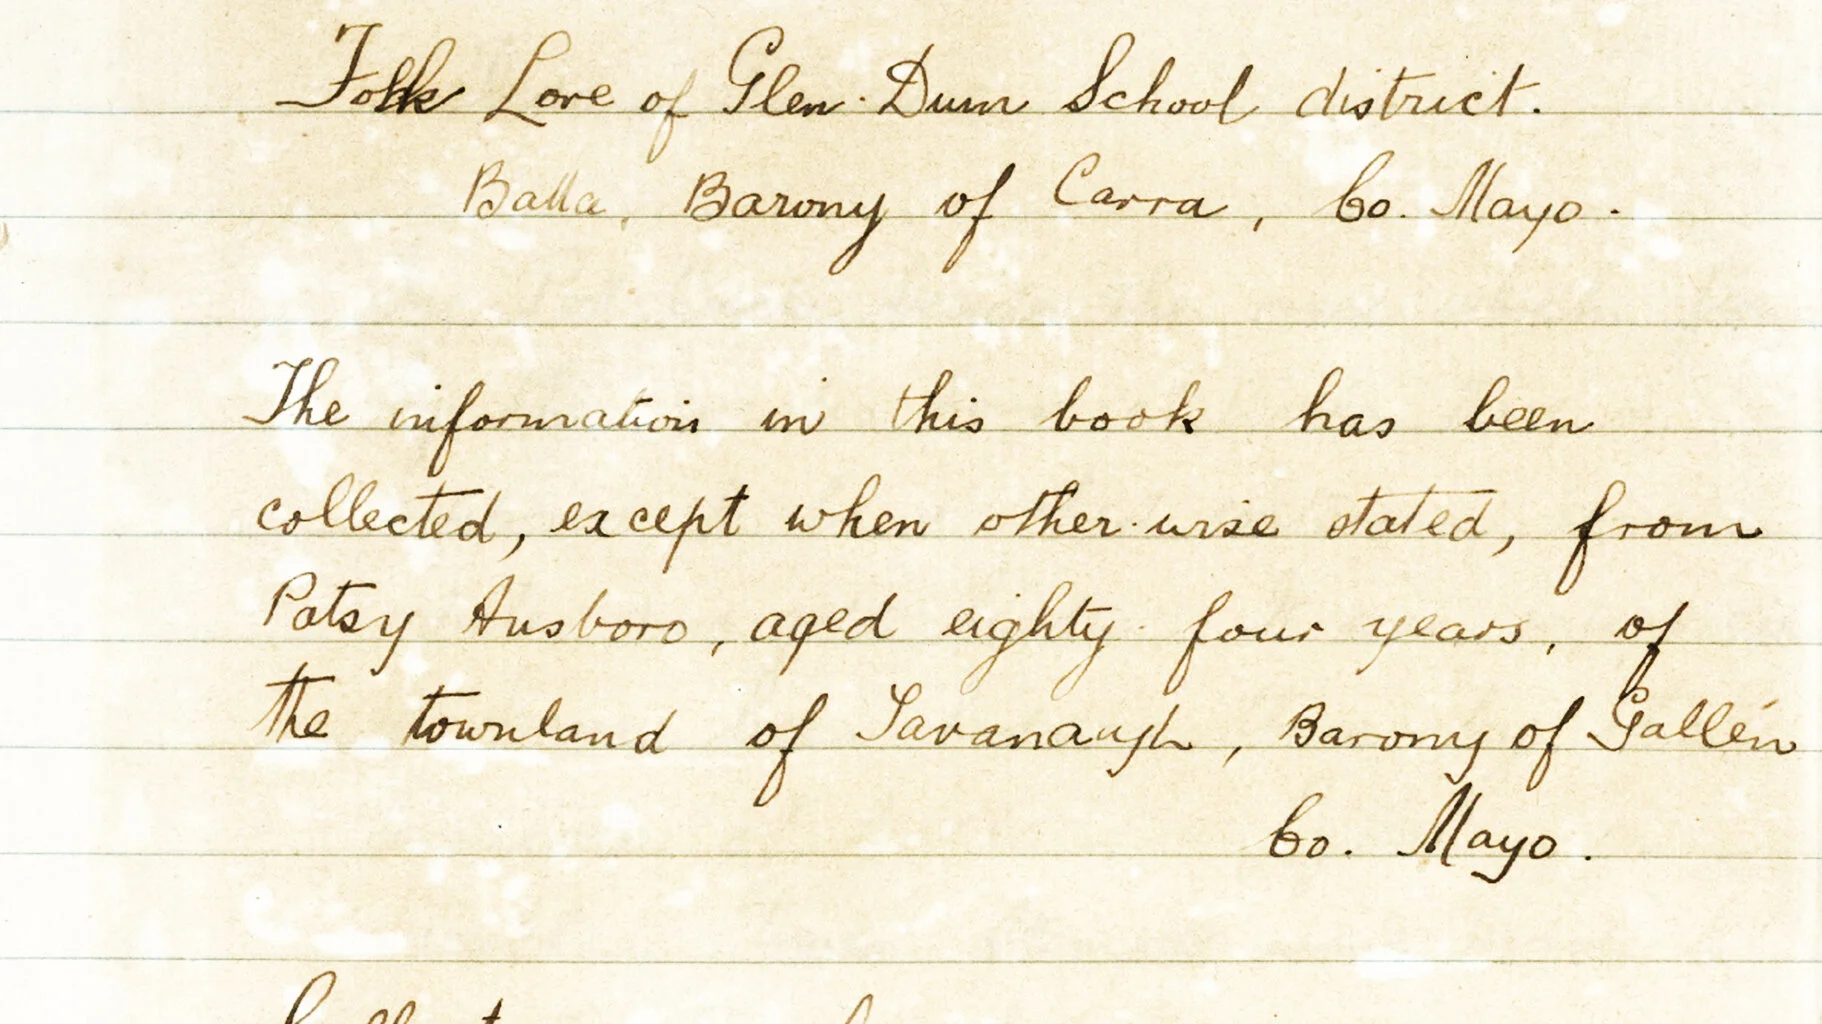 Folk Lore of Glen-Dum School district.
Balla, Barony of Carra, Co. Mayo.
The information in this book has been
collected, except when other-wise stated, from
Patsy Ansboro, aged eighty-four years, of
the townland of Tavanaugh, Barony of Gallen
Co. Mayo.